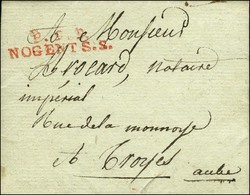 P. 9. P.
NOGENT S.S.
A Monsieur
Avocard, Notaire
impérial
Rue de la monnoye
A Troyes
aube